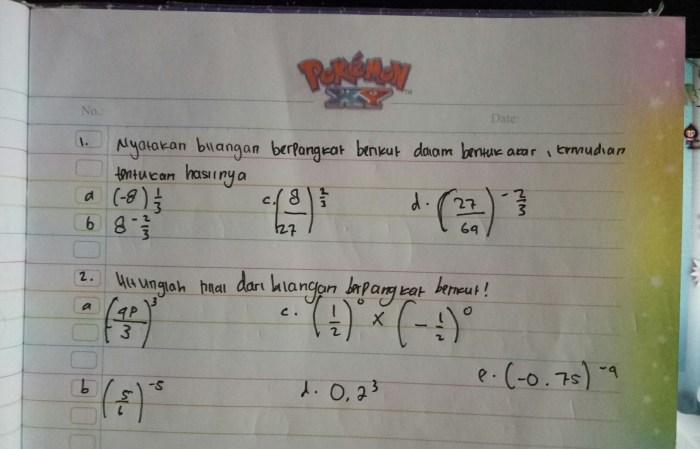 POKéMON
XY
No.
Date:
1. Nyatakan bilangan berpangkat berikut dalam bentuk akar, kemudian
tentukan hasilnya
a (-8) 1/3 c. (8/27) 2/3 d. (27/64) -2/3
b 8 -2/3
2. Hitunglah nilai dari bilangan berpangkat berikut!
a (4p/3)³ c. (1/2)⁰ x (-1/2)⁰
b (5/6)⁻⁵ d. 0,2³ e. (-0.75)⁻⁴